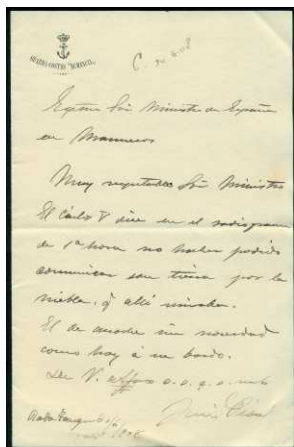 GUARDA-COSTAS "NUMANCIA"
C.
Excmo Sr Ministro de España
en Marruecos
Muy respetable Sr Ministro
El Carlos V dice en el radiograma
de 1ª hora no haber podido
comunicar con tierra por la
niebla, q allí
El de anoche sin novedad
como hoy á su bordo.
De V.
1908